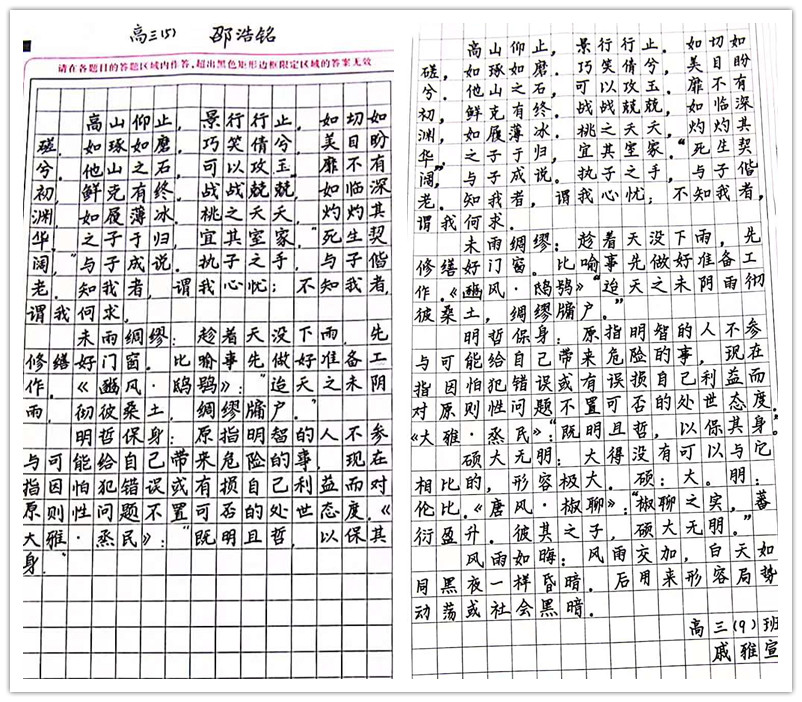 高三(5) 邵浩铭
请在各题目的答题区域内作答,超出黑色矩形边框限定区域的答案无效
高山仰止，景行行止。如切如
磋，如琢如磨。巧笑倩兮，美目盼
兮。他山之石，可以攻玉。靡不有
初，鲜克有终。战战兢兢，如临深
渊，如履薄冰。桃之夭夭，灼灼其
华。之子于归，宜其室家。“死生契
阔，”与子成说。执子之手，与子偕
老。知我者，谓我心忧；不知我者，
谓我何求。
未雨绸缪：趁着天没下雨，先
修缮好门窗。比喻事先做好准备工
作。《豳风·鸱鸮》：“迨天之未阴
雨，彻彼桑土，绸缪牖户。”
明哲保身：原指明智的人不参
与可能给自己带来危险的事，现在
指因怕犯错误或有损自己利益而对
原则性问题不置可否的处世态度。《
大雅·烝民》：“既明且哲，以保其
身。”
高山仰止，景行行止。如切如
磋，如琢如磨。巧笑倩兮，美目盼
兮。他山之石，可以攻玉。靡不有
初，鲜克有终。战战兢兢，如临深
渊，如履薄冰。桃之夭夭，灼灼其
华，之子于归，宜其室家。“死生契
阔，”与子成说。执子之手，与子偕
老。知我者，谓我心忧；不知我者，
谓我何求。
未雨绸缪：趁着天没下雨，先
修缮好门窗。比喻事先做好准备工
作。《豳风·鸱鸮》“迨天之未阴雨彻
彼桑土，绸缪牖户。”
明哲保身：原指明智的人不参
与可能给自己带来危险的事，现在
指因怕犯错误或有误损自己利益而
对原则性问题不置可否的处世态度。
《大雅·烝民》：“既明且哲，以保其身。
硕大无朋：大得没有可以与它
相比的，形容极大。硕：大。朋：
伦比。《唐风·椒聊》：“椒聊之实，蕃
衍盈升。彼其之子，硕大无朋。”
风雨如晦：风雨交加，白天如
同黑夜一样昏暗。后用来形容局势
动荡或社会黑暗。
高三(9)班
戚雅宣